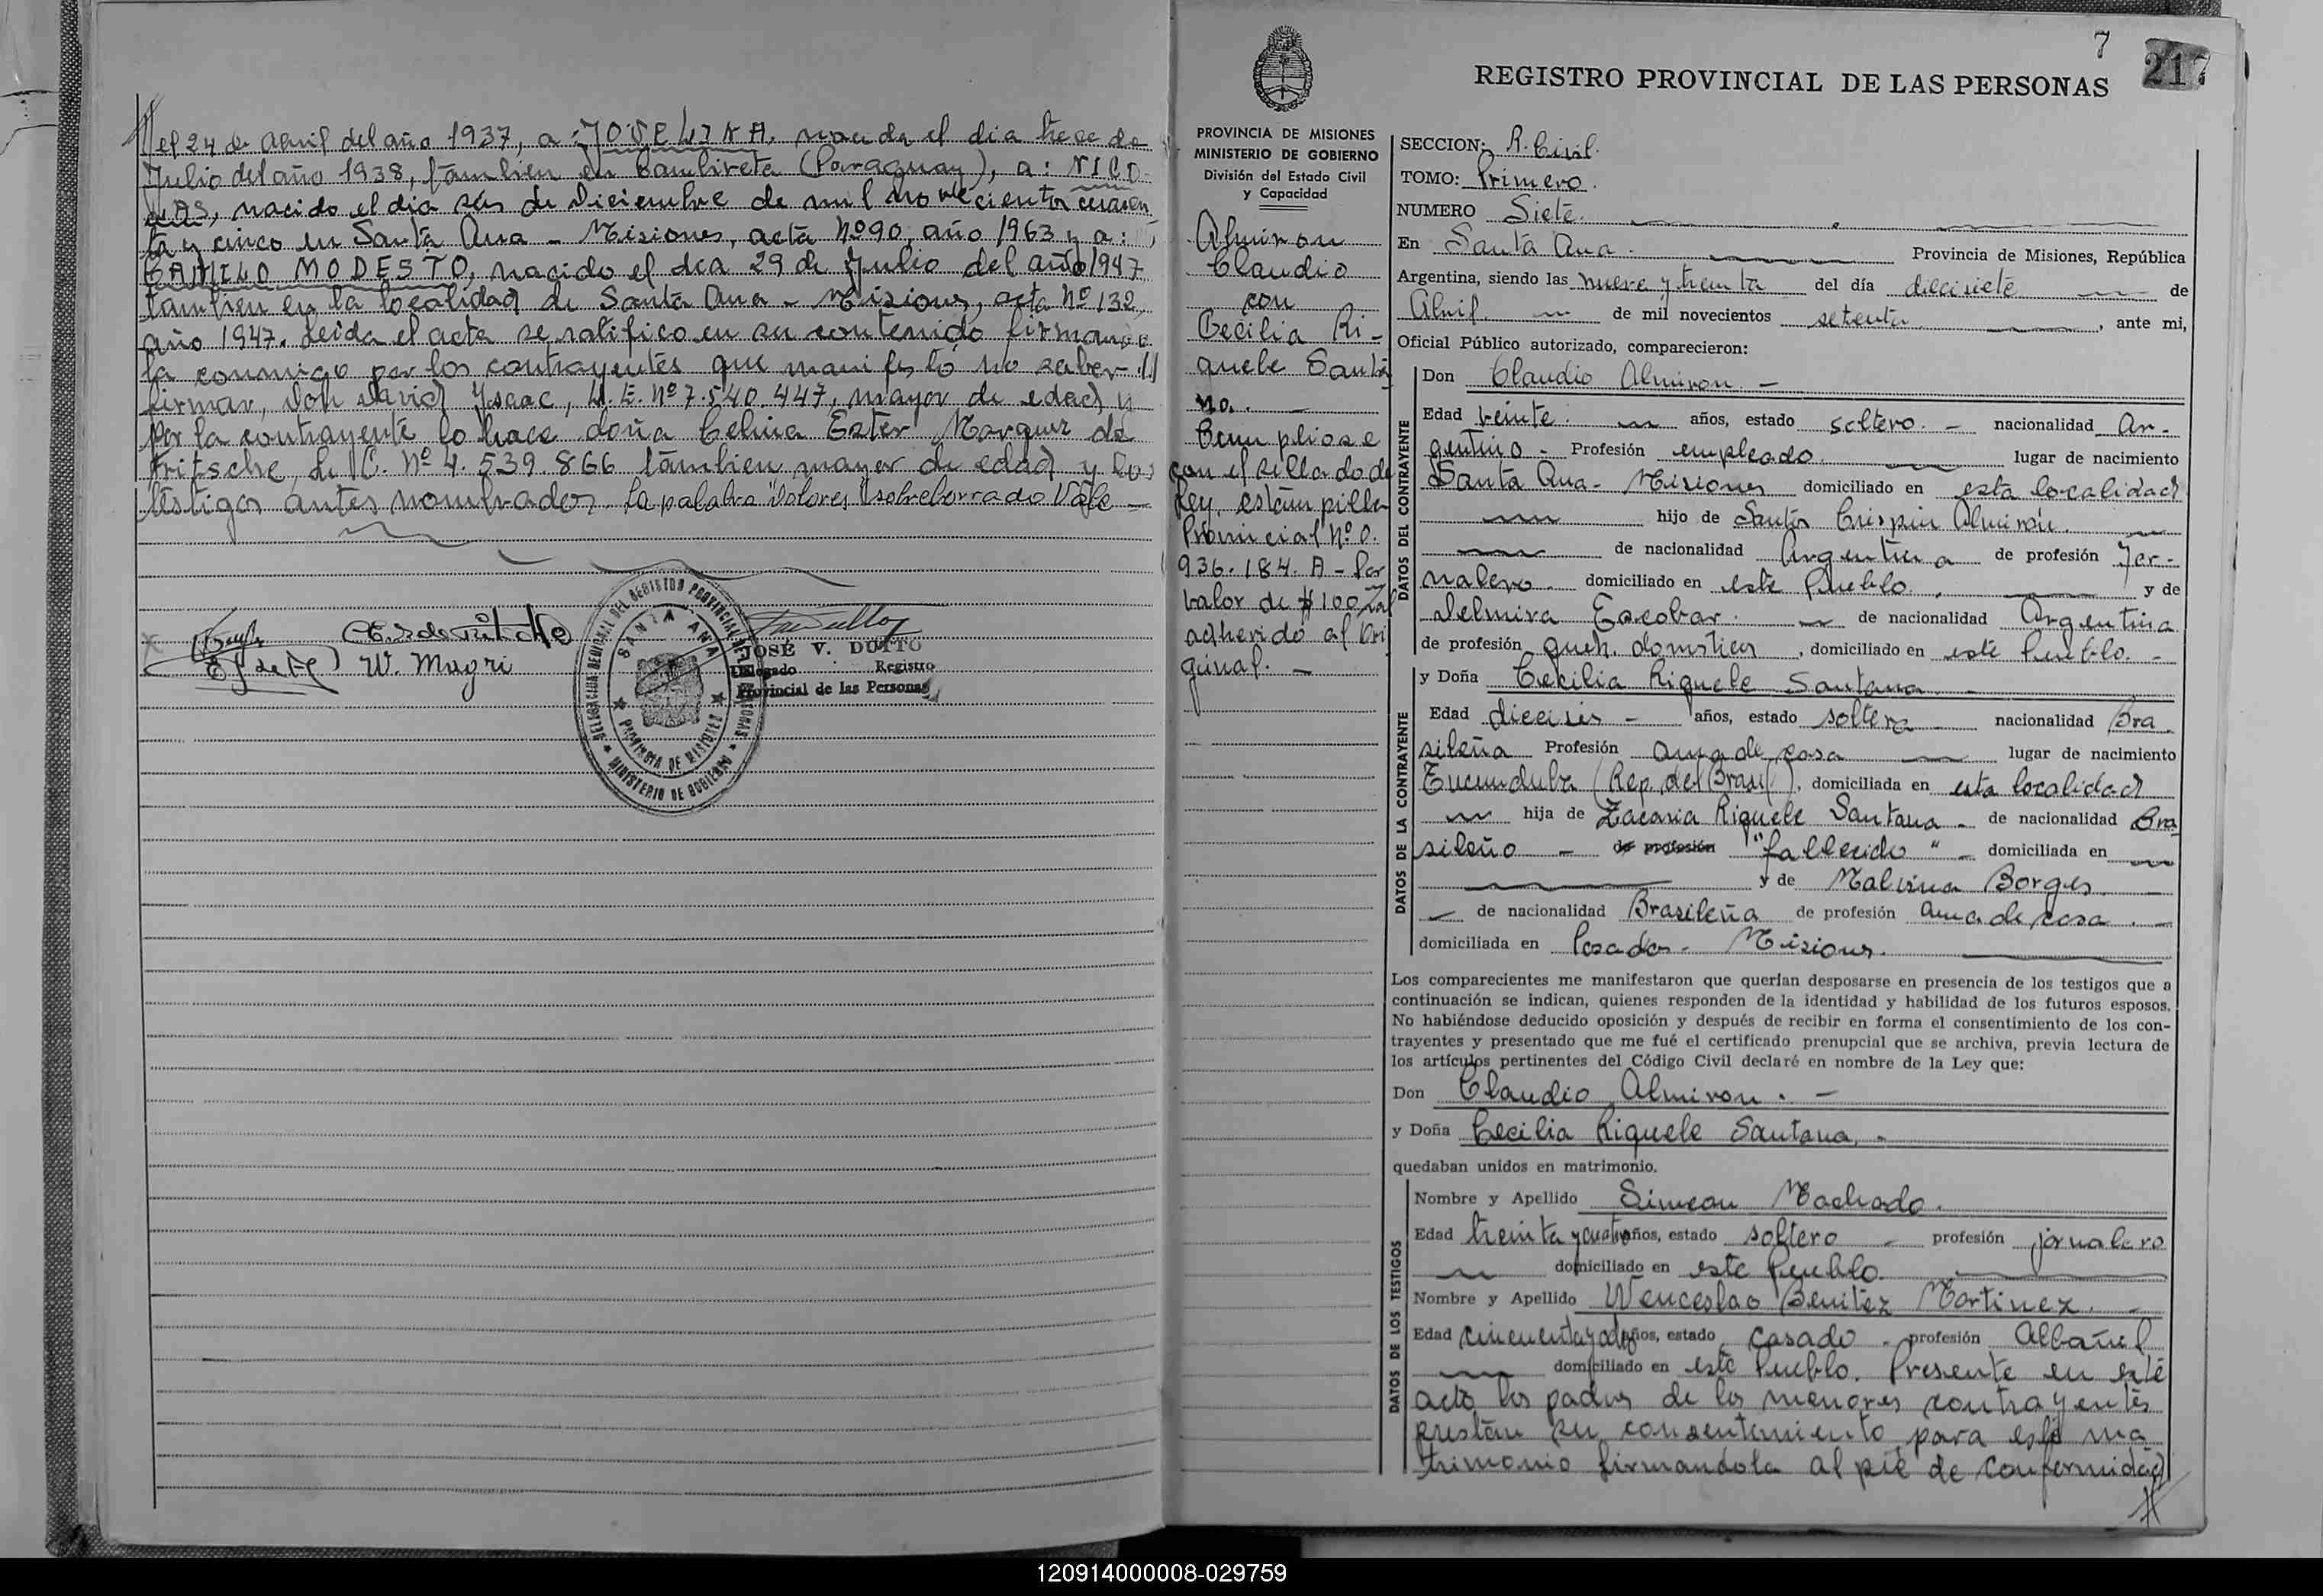 el 24 de Abril del año 1937, a: JOVELINA, nacida el dia trece de
Julio del año 1938, tambien en Cambireta (Paraguay), a: NICO-
LAS, nacido el dia seis de Diciembre de mil novecientos cuaren
ta y cinco en Santa Ana - Misiones, acta Nº 90, año 1963 y a:
CAMILO MODESTO, nacido el dia 29 de Julio del año 1947
tambien en la localidad de Santa Ana - Misiones, acta Nº 132,
año 1947. Leida el acta se ratifico en su contenido firmando
la conmigo por los contrayentes que manifestó no saber
firmar, don David Ysaac, L.E. Nº 7.540.447, mayor de edad y
por la contrayente lo hace doña Celina Ester Marquez de
Fritsche, L.C. Nº 4.539.866 tambien mayor de edad y los
testigos antes nombrados. La palabra "Dolores" sobreborrado Vale -
W. Magri
DELEGACION REGIONAL DEL REGISTRO PROVINCIAL DE LAS PERSONAS
SANTA ANA
PROVINCIA DE MISIONES
MINISTERIO DE GOBIERNO
JOSÉ V. DUTTO
Delegado Registro
Provincial de las Personas
7
217
REGISTRO PROVINCIAL DE LAS PERSONAS
PROVINCIA DE MISIONES
MINISTERIO DE GOBIERNO
División del Estado Civil
y Capacidad
Almiron
Claudio
con
Cecilia Ri-
quele Santa
na.
Cumpliose
con el sellado de
Ley, estampilla
Provincial Nº 0.
936.184. A - Por
valor de $ 100
adherido al Ori
ginal. -
SECCION: R. Civil.
TOMO: Primero.
NUMERO Siete.
En Santa Ana. Provincia de Misiones, República
Argentina, siendo las nueve y treinta del día diecisiete de
Abril de mil novecientos setenta, ante mi,
Oficial Público autorizado, comparecieron:
DATOS DEL CONTRAYENTE
Don Claudio Almiron. -
Edad veinte. años, estado soltero. - nacionalidad Ar-
gentino - Profesión empleado. lugar de nacimiento
Santa Ana - Misiones domiciliado en esta localidad
hijo de Santos Crispin Almirón.
de nacionalidad Argentina de profesión Jor-
nalero. domiciliado en este Pueblo. y de
Delmira Escobar. de nacionalidad Argentina
de profesión queh. domsticos, domiciliado en este Pueblo. -
DATOS DE LA CONTRAYENTE
y Doña Cecilia Riquele Santana -
Edad dieciseis - años, estado soltera nacionalidad Bra
sileña Profesión ama de casa lugar de nacimiento
Tucunduba (Rep. del Brasil), domiciliada en esta localidad
hija de Zacaria Riquele Santana - de nacionalidad Bra
sileño - de profesión "fallecido" - domiciliada en
y de Malvina Borges
de nacionalidad Brasileña de profesión ama de casa. -
domiciliada en Posadas - Misiones.
Los comparecientes me manifestaron que querían desposarse en presencia de los testigos que a
continuación se indican, quienes responden de la identidad y habilidad de los futuros esposos.
No habiéndose deducido oposición y después de recibir en forma el consentimiento de los con-
trayentes y presentado que me fué el certificado prenupcial que se archiva, previa lectura de
los artículos pertinentes del Código Civil declaré en nombre de la Ley que:
Don Claudio Almiron. -
y Doña Cecilia Riquele Santana. -
quedaban unidos en matrimonio.
DATOS DE LOS TESTIGOS
Nombre y Apellido Simeon Machado.
Edad treinta y cuatro años, estado soltero - profesión jornalero
domiciliado en este Pueblo.
Nombre y Apellido Wenceslao Benitez Martinez. -
Edad cincuenta y años, estado casado - profesión Albañil
domiciliado en este Pueblo. Presente en este
acto los padres de los menores contrayentes
prestan su consentimiento para este ma
trimonio firmandola al pie de conformidad
120914000008-029759